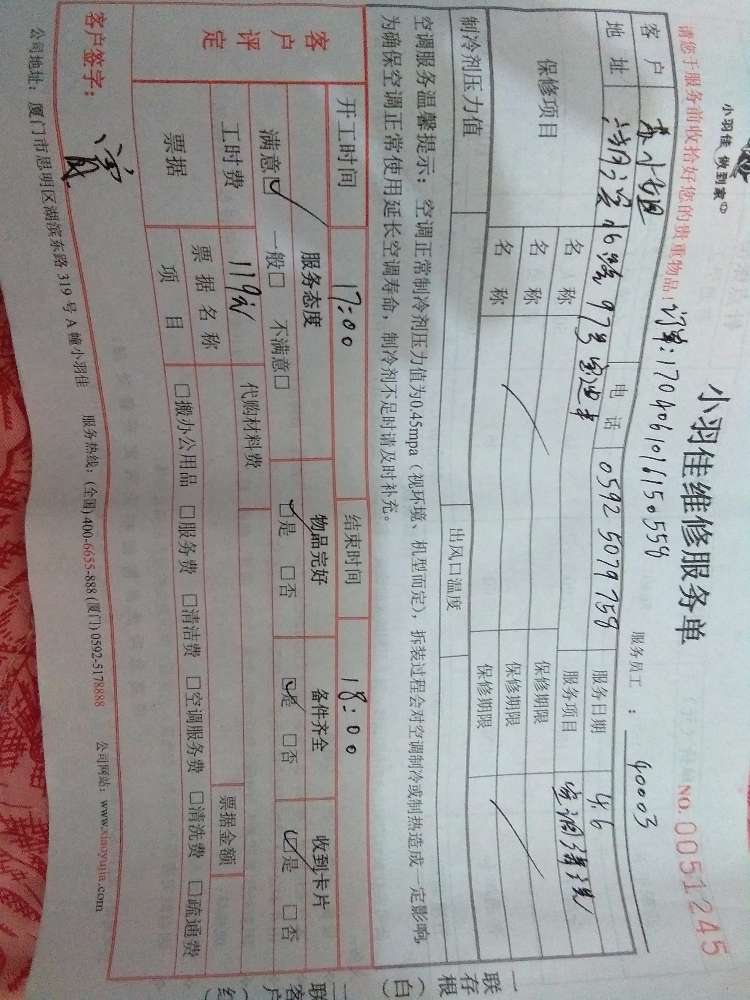 小羽佳 做到家
小羽佳维修服务单
NO.0051245
请您于服务前收拾好您的贵重物品!
订单:1704061016150558
服务员工: 90003
客户
电话 0592 5079758
服务日期 4.6
地址
97号
服务项目 空调清洗
保修项目
名称 保修期限
名称 保修期限
名称 保修期限
制冷剂压力值 出风口温度
空调服务温馨提示:空调正常制冷剂压力值为0.45mpa(视环境、机型而定),拆装过程会对空调制冷或制热造成一定影响,
为确保空调正常使用延长空调寿命,制冷剂不足时请及时补充。
开工时间 17:00 结束时间 18:00
客户评定
服务态度 物品完好 备件齐全 收到卡片
满意☑ 一般□ 不满意□ ☑是 □否 ☑是 □否 ☑是 □否
工时费 119元 代购材料费
票据 票据名称 票据金额
项目 □搬办公用品 □服务费 □清洁费 □空调服务费 □清洗费 □疏通费
客户签字:
公司地址:厦门市思明区湖滨东路319号A幢小羽佳 服务热线:(全国)400-6655-888(厦门)0592-5178888 公司网站:www.xiaoyujia.com
一联存根(白)
二联客户(红